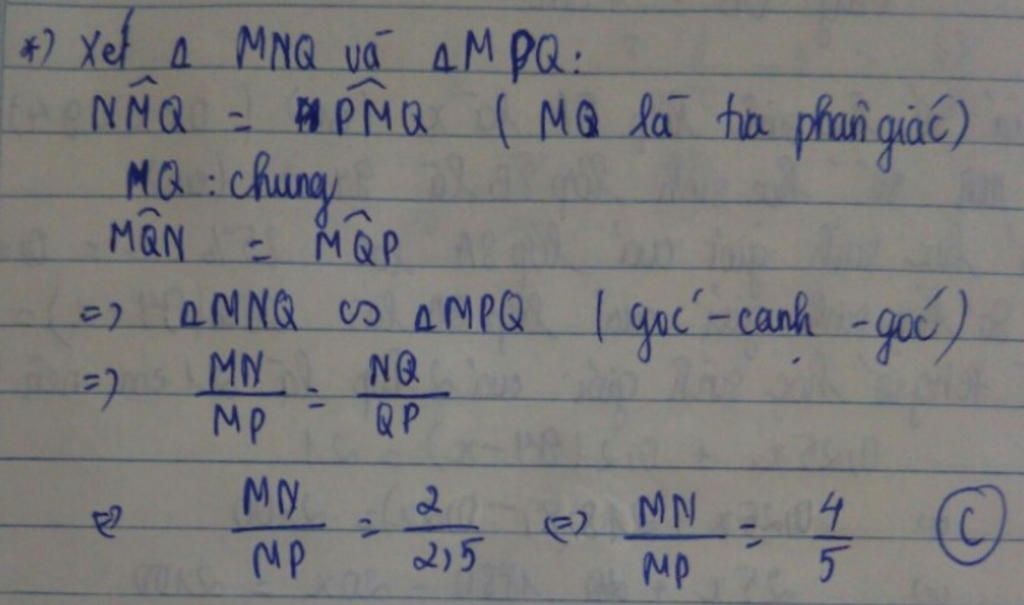 *) Xét Δ MNQ và ΔMPQ:
NM̂Q = PM̂Q ( MQ là tia phân giác)
MQ: chung
MQ̂N = MQ̂P
=> ΔMNQ ∽ ΔMPQ (góc - cạnh - góc)
=> MN/MP = NQ/QP
<=> MN/MP = 2/2,5 <=> MN/MP = 4/5 (C)